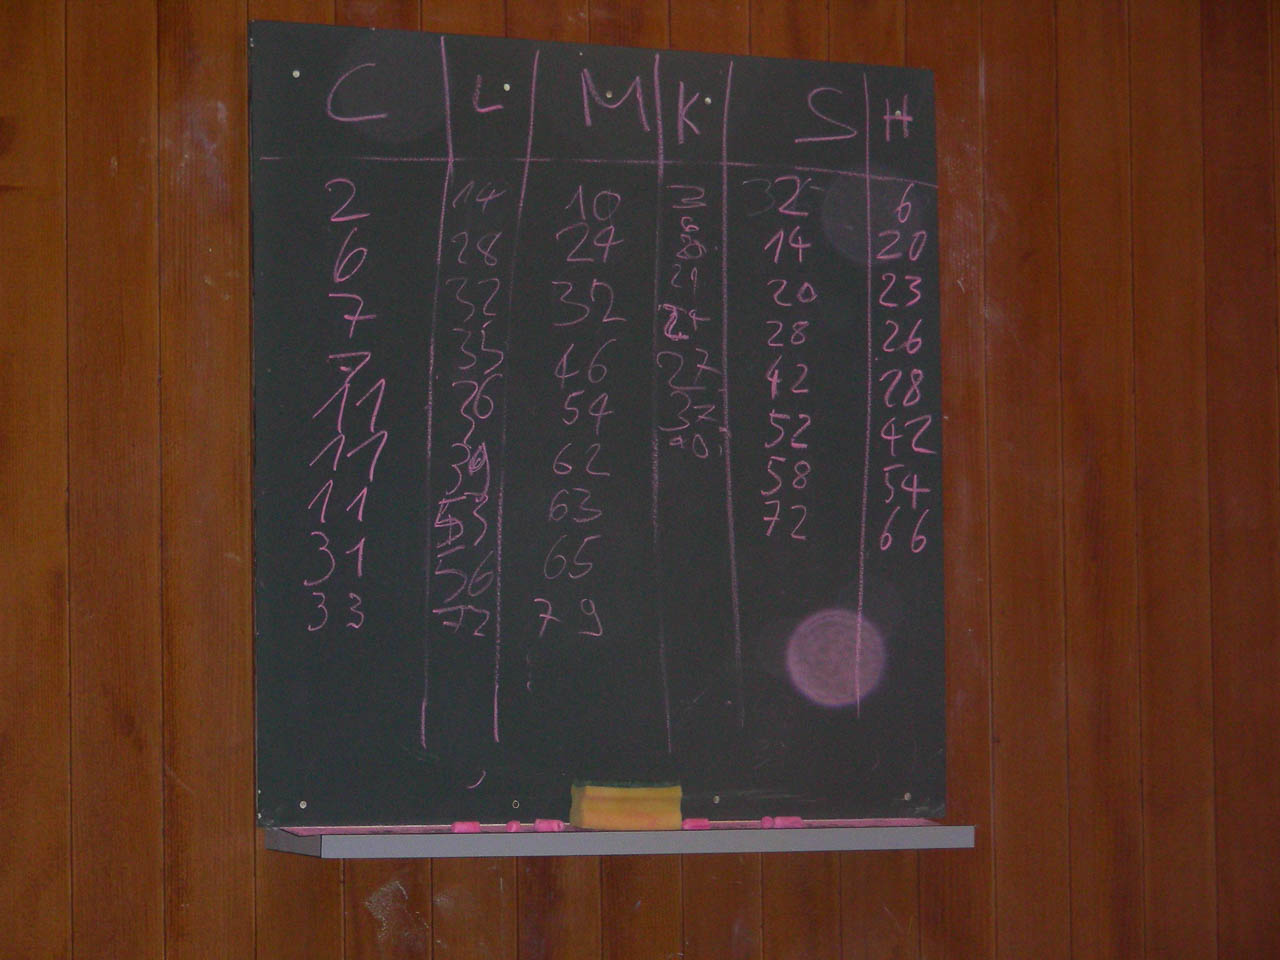 C L M K S H
2 14 10 3 2 6
6 28 24 8 14 20
7 32 32 20 20 23
7 35 46 21 28 26
11 36 54 24 42 28
11 39 62 27 52 42
11 53 63 37 58 54
31 56 65 40 72 66
33 72 79